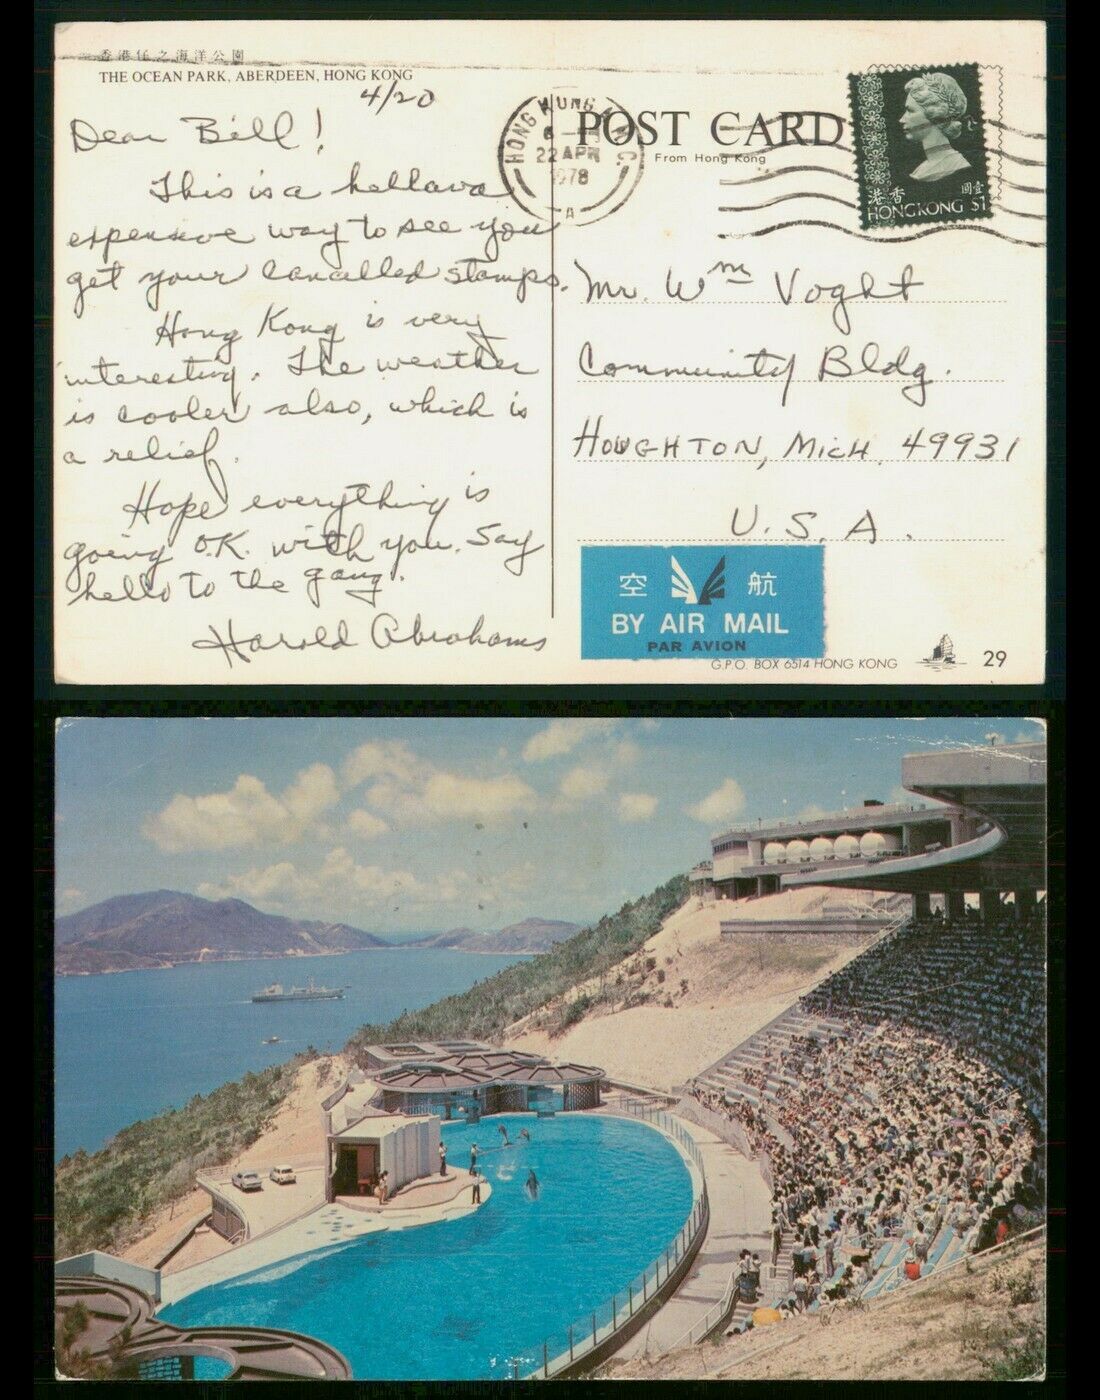 香港仔之海洋公園
THE OCEAN PARK, ABERDEEN, HONG KONG
4/20
Dear Bill!
This is a hellava
expensive way to see you
get your cancelled stamps.
Hong Kong is very
interesting. The weather
is cooler also, which is
a relief.
Hope everything is
going O.K. with you. Say
hello to the gang.
Harold Abrahams
POST CARD
From Hong Kong
HONG KONG
22 APR
1978
A
香港
壹圓
HONG KONG $1
Mr. Wm Voght
Community Bldg.
HOUGHTON, MICH. 49931
U.S.A.
空 航
BY AIR MAIL
PAR AVION
G.P.O. BOX 6514 HONG KONG
29